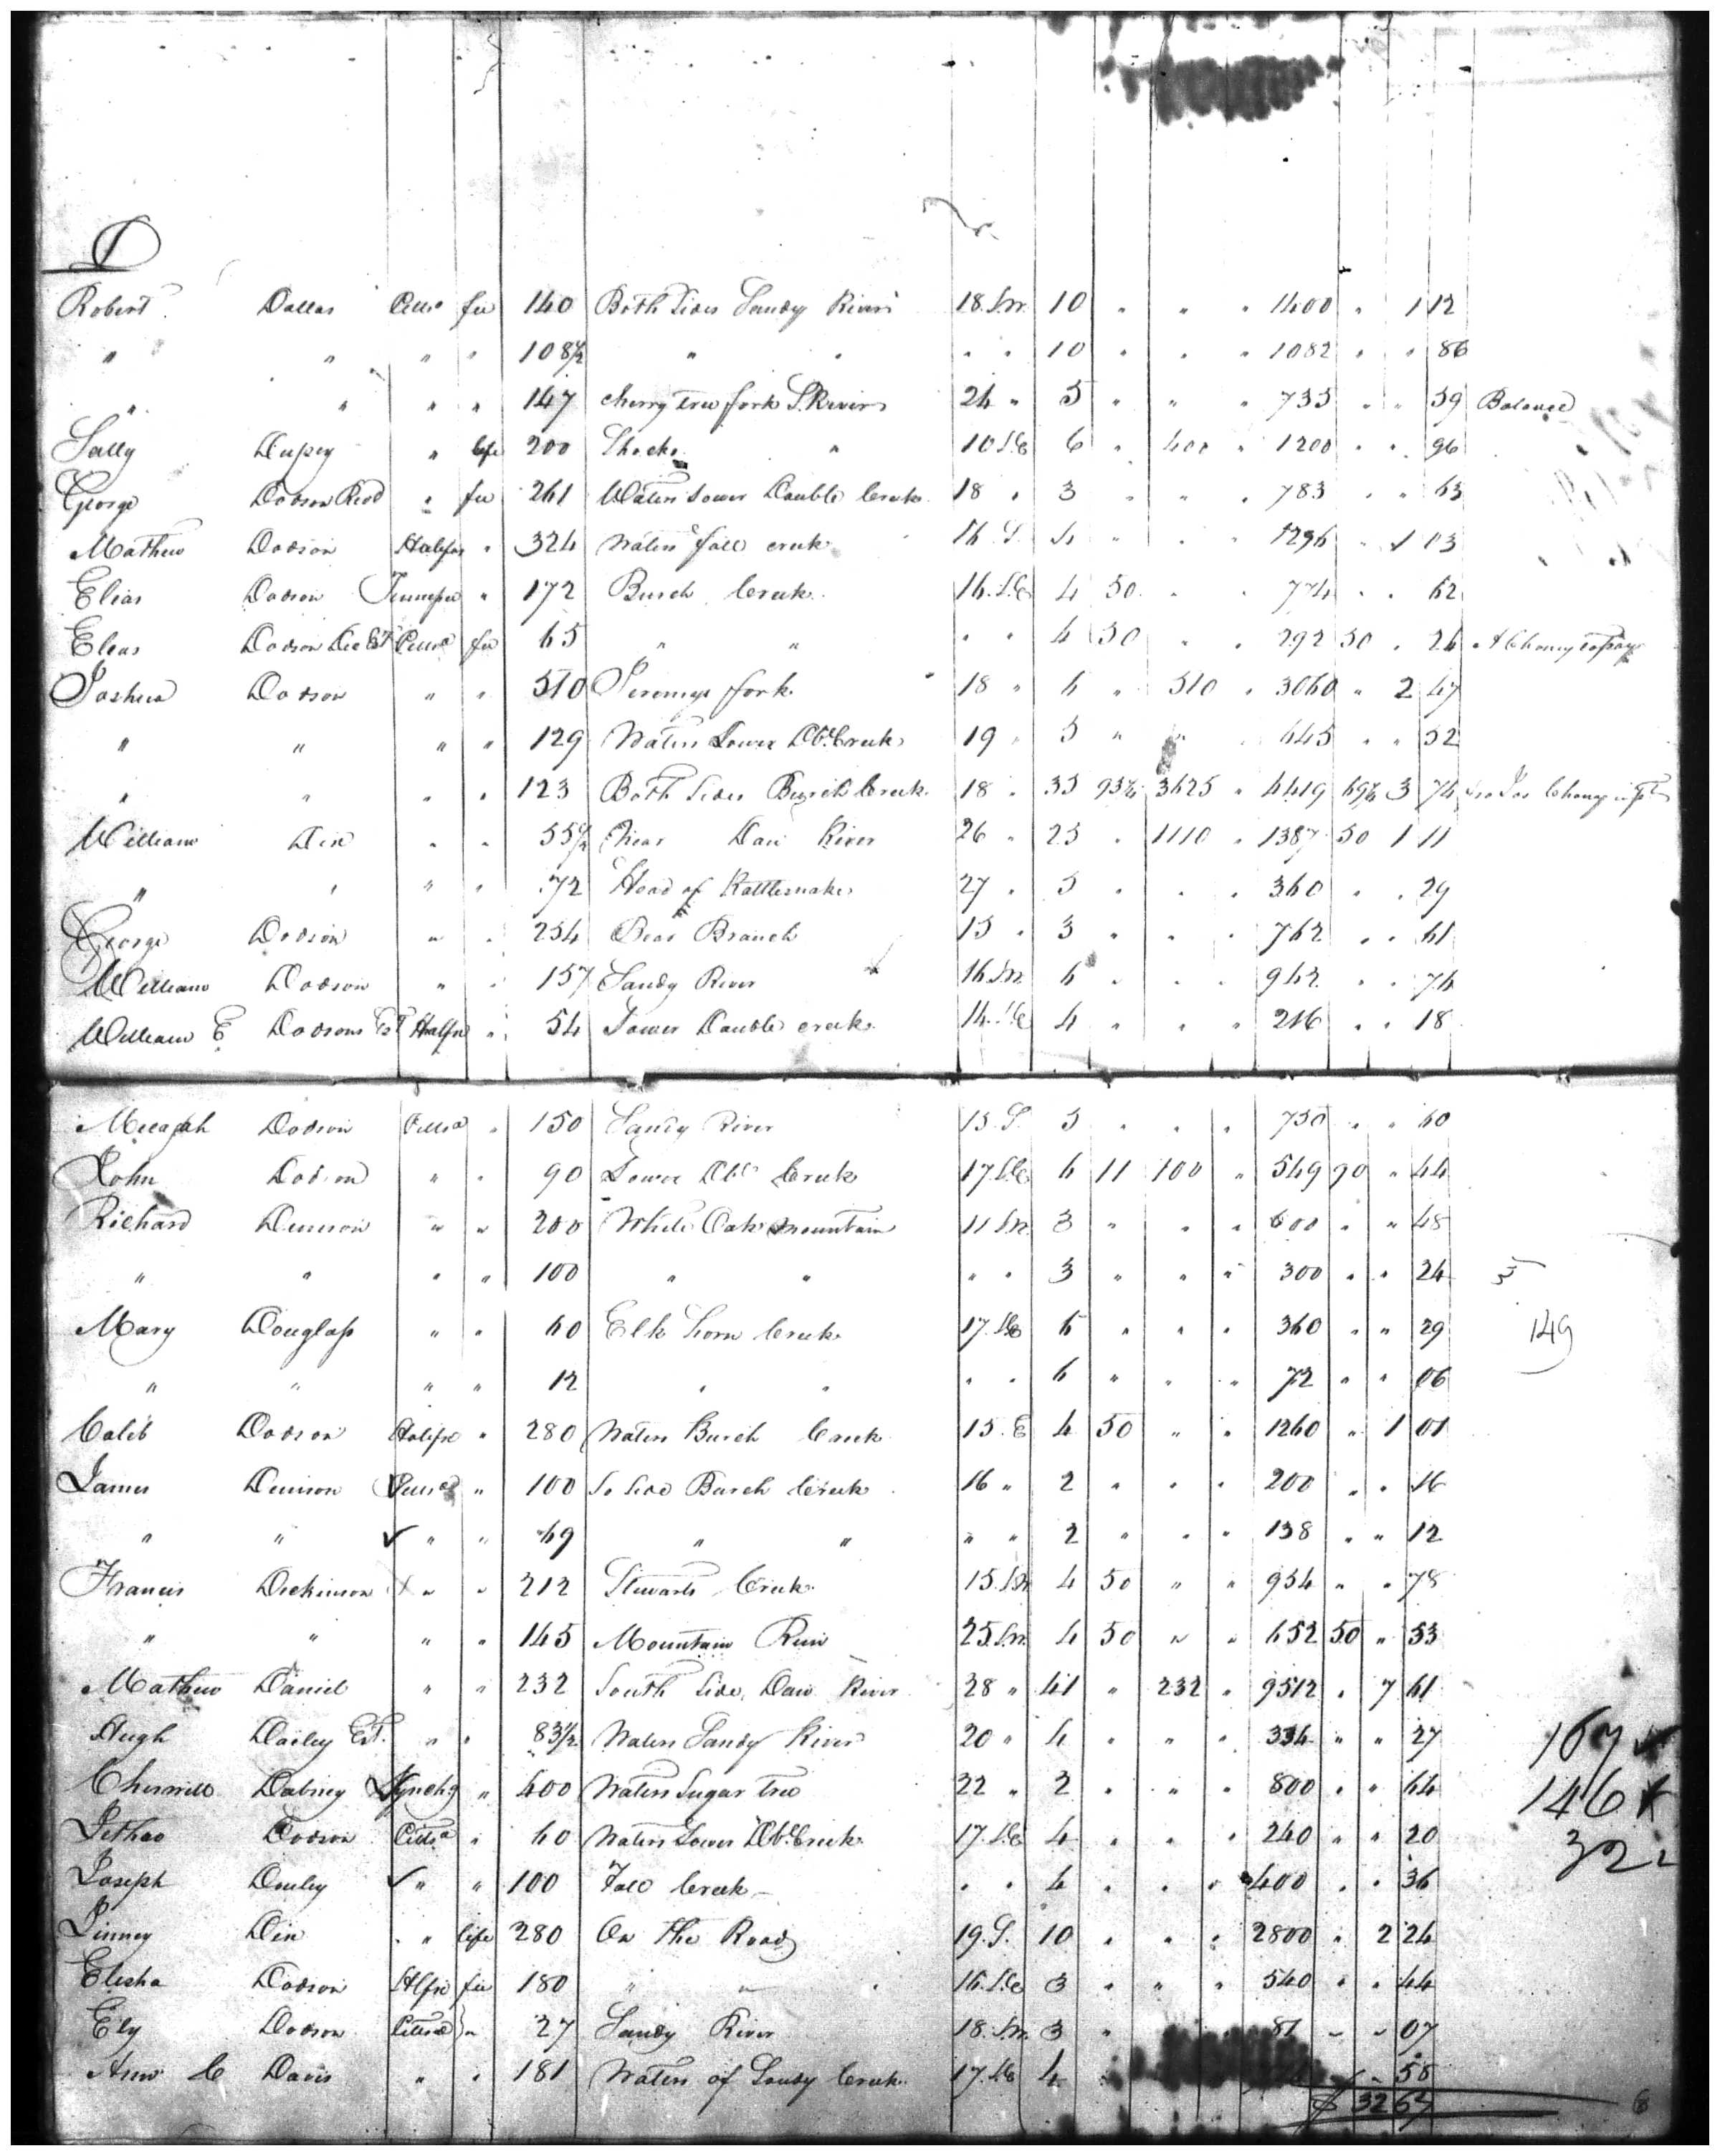 D
Robert Dallas Pitts^a fee 140 Both Sides Sandy River 18. S.W. 10 " " " 1400 " 1 12
" " " " 108½ " " " " 10 " " " 1082 " " 86
" " " " 147 cherry tree fork S. River 24 " 5 " " " 735 " " 59 Balance
Sally Dupey " life 200 Shocko " 10 S.E 6 " 400 " 1200 " " 96
George Dodson " fee 261 Waters Lower Double Creek 18 " 3 " " " 783 " " 63
Mathew Dodson Halifax " 324 Waters fall creek 16 S. 4 " " " 1296 " 1 03
Elias Dodson Tennessee " 172 Burch Creek 16. S.E 4 50 " " 774 " " 62
Elias Dodson Est Pitts^a fee 65 " " " " 4 50 " " 292 50 " 24
Joshua Dodson " " 510 Jeremys fork 18 " 6 " 510 " 3060 " 2 47
" " " " 129 Waters Lower Dbl. Creek 19 " 5 " " " 645 " " 52
" " " " 123 Both Sides Burch Creek 18 " 35 93¼ 3625 " 4419 69¾ 3 74
William Dix " " 55½ Near Dan River 26 " 25 " 1110 " 1387 50 1 11
" " " " 72 Head of Rattlesnake 27 " 5 " " " 360 " " 29
George Dodson " " 254 Bear Branch 15 " 3 " " " 762 " " 61
William Dodson " " 157 Sandy River 16 S.W. 6 " " " 942 " " 76
William E Dodsons Est Halfx " 54 Lower Double creek 14. S.E 4 " " " 216 " " 18
Micajah Dodson Pitts^a " 150 Sandy River 15. S. 5 " " " 750 " " 60
John Dodson " " 90 Lower Dbl. Creek 17. S.E 6 11 100 " 549 90 " 44
Richard Denison " " 200 White Oak Mountain 11 S.W. 3 " " " 600 " " 48
" " " " 100 " " " " 3 " " " 300 " " 24
Mary Douglass " " 60 Elk horn Creek 17. S.E 6 " " " 360 " " 29 149
" " " " 12 " " " " 6 " " " 72 " " 06
Caleb Dodson Halifx " 280 Waters Burch Creek 15. E 4 50 " " 1260 " 1 01
James Denison Pitts^a " 100 So Side Burch Creek 16 " 2 " " " 200 " " 16
" " ✓ " " 69 " " " " 2 " " " 138 " " 12
Francis Dickinson " " 212 Stewarts Creek 15. S.W 4 50 " " 954 " " 78
" " " " 145 Mountain Run 25. S.W. 4 50 " " 652 50 " 53
Mathew Daniel " " 232 South Side Dan River 28 " 41 " 232 " 9512 " 7 61
Hugh Dailey Est. " " 83½ Waters Sandy River 20 " 4 " " " 334 " " 27 167 ✓
Dabney Lynchg " 400 Waters Sugar tree 22 " 2 " " " 800 " " 64 146
Dodson Pitts^a " 60 Waters Lower Dbl. Creek 17. S.E 4 " " " 240 " " 20 32
Joseph ✓ " " 100 Fall Creek " " 4 " " " 400 " " 36
Dix " life 280 On the Road 19. S. 10 " " " 2800 " 2 24
Elisha Dodson Hlfx fee 180 " " 16. S.E 3 " " " 540 " " 44
Ely Dodson Pitts^a " 27 Sandy River 18. S.W. 3 " 81 " " 07
Ann C Davis " " 181 Waters of Sandy Creek 17. S.E 4 " 58
$ 32 67